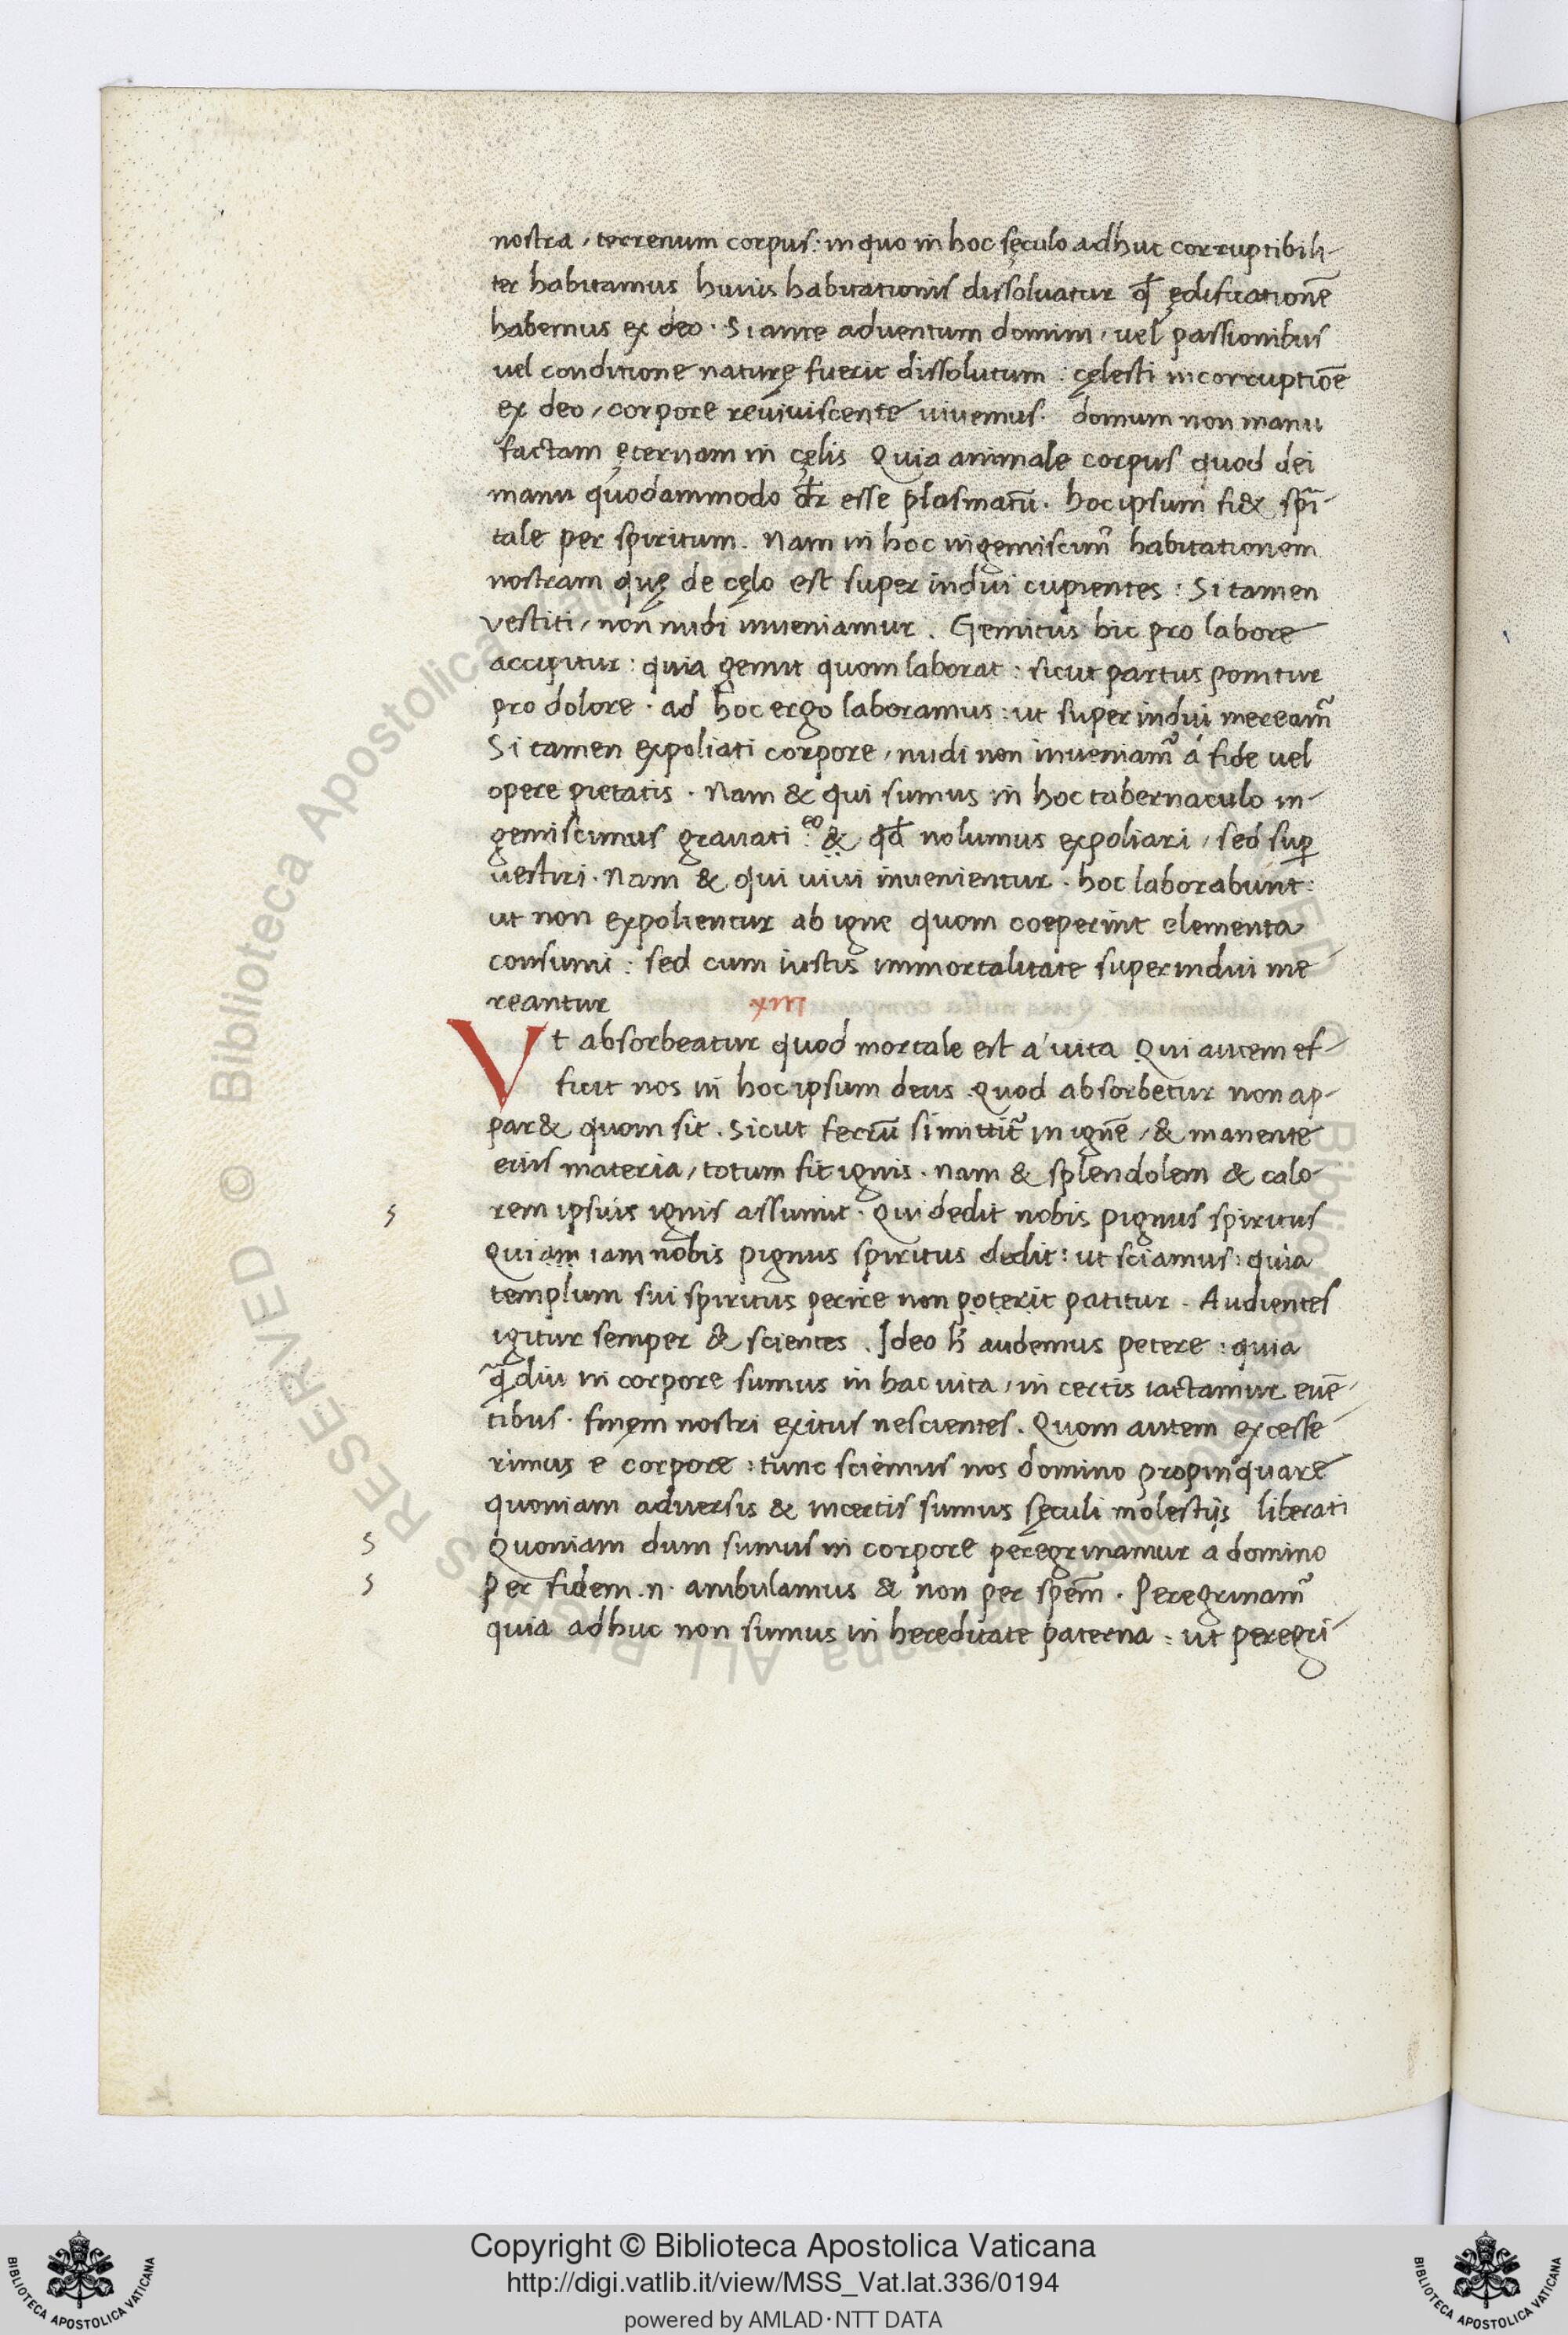 nostra, terrenum corpus: in quo in hoc sęculo adhuc corruptibili-
ter habitamus huius habitationis dissoluatur qđ ędificationē
habemus ex deo. Si ante aduentum domini, uel passionibus
uel conditione naturę fuerit dissolutum: cęlesti incorruptiōe
ex deo, corpore reuiuiscente uiuemus. domum non manu
factam ęternam in cęlis Quia animale corpus quod dei
manu quodammodo dr̄ esse plasmatū. hoc ipsum fi& spi-
tale per spiritum. Nam in hoc ingemiscim᾽ habitationem
nostram quę de cęlo est super indui cupientes: Si tamen
vestiti, non nudi inueniamur. Gemitus hic pro labore
accipitur: quia gemit quom laborat: sicut partus ponitur
pro dolore. ad hoc ergo laboramus: ut super indui meream᾽
Si tamen expoliati corpore, nudi non inueniam᾽ á fide uel
opere pietatis. Nam & qui sumus in hoc tabernaculo in-
gemiscimus grauati: eo & qđ nolumus expoliari, sed sup
uestiri. Nam & qui uiui inuenientur. hoc laborabunt:
ut non expolientur ab igne quom coeperint elementa
consumi: sed cum iustis immortalitate superindui me
reantur xiii
Vt absorbeatur quod mortale est a᾽ uita Qui autem ef-
ficit nos in hoc ipsum deus. Quod absorbetur non ap-
par& quom sit. Sicut ferrū si mittit᾽ in ignē, & manente
eius materia, totum fit ignis. nam & splendolem & calo-
s rem ipsius ignis assumit. Qui dedit nobis pignus spiritus
Quiam iam nobis pignus spiritus dedit: ut sciamus: quia
templum sui spiritus perire non poterit patitur. Audientes
igitur semper & scientes. Ideo h᾽ audemus petere: quia
q̄diu in corpore sumus in hac uita, in certis iactamur euē-
tibus. finem nostri exitus nescientes. Quom autem excesse-
rimus e corpore: tunc sciemus nos domino propinquare
quoniam aduersis & incertis sumus sęculi molestijs liberati
s Quoniam dum sumus in corpore peregrinamur a domino
s Per fidem .n. ambulamus & non per spem̄. Peregrinam᾽
quia adhuc non sumus in hereditate paterna: ut peregri-
Copyright © Biblioteca Apostolica Vaticana
http://digi.vatlib.it/view/MSS_Vat.lat.336/0194
powered by AMLAD·NTT DATA